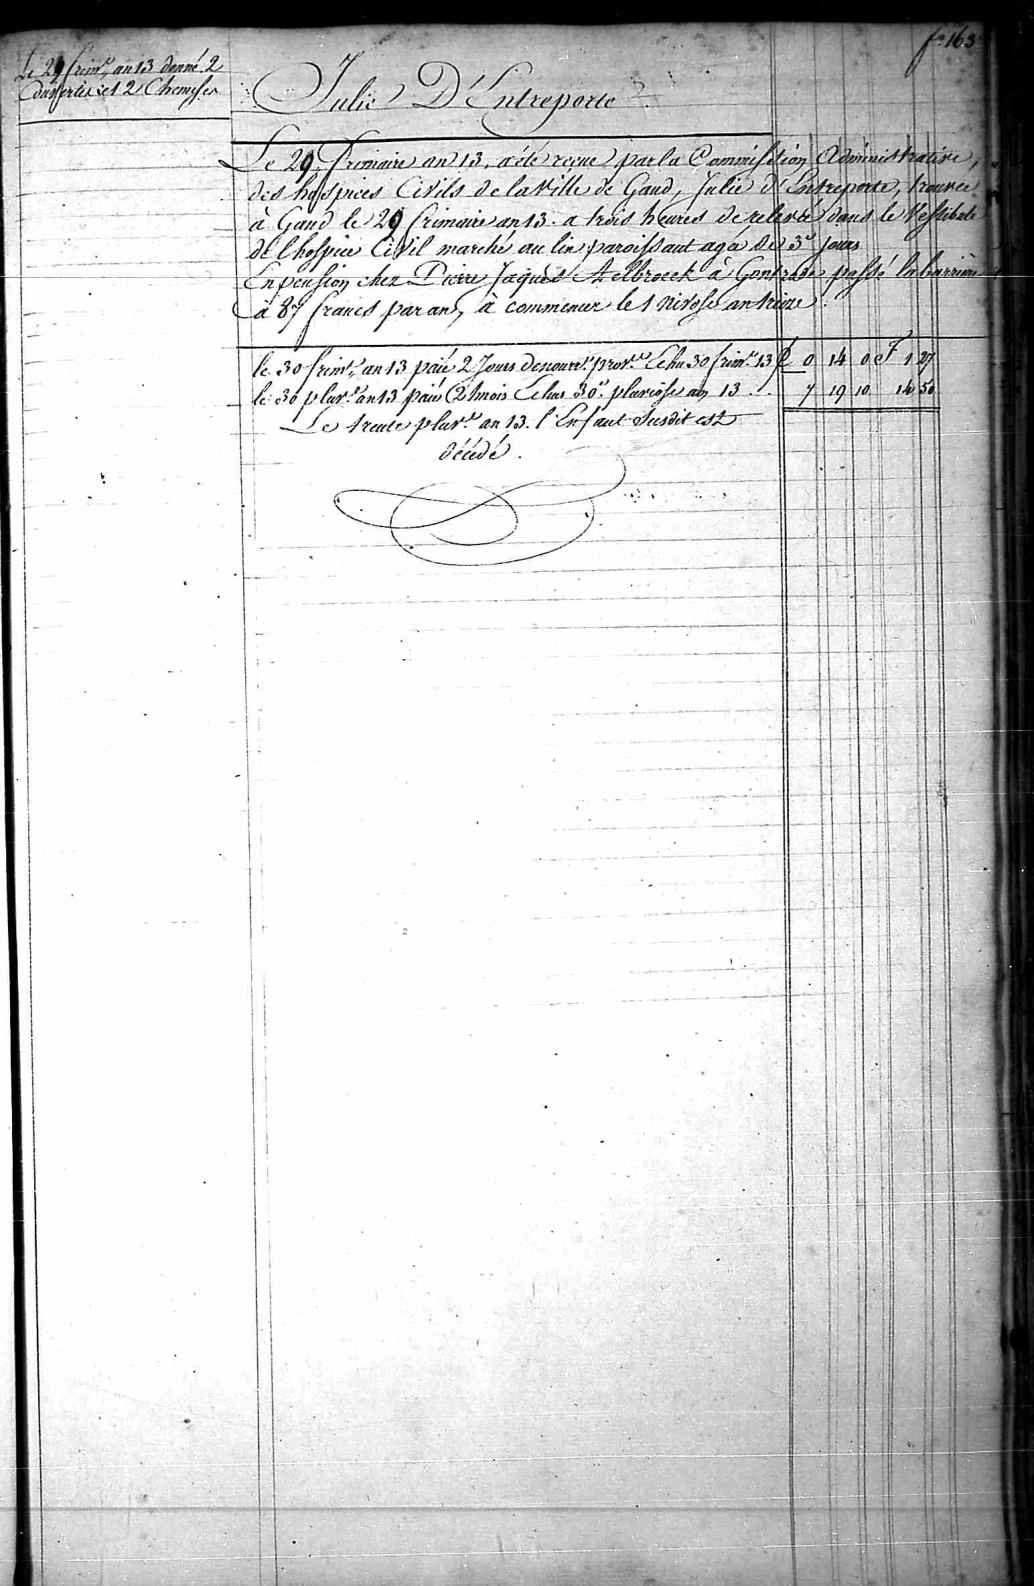 fo 163
Le 29 frimre an 13 donné 2
Couvertes et 2 Chemises
Julie D'Entreporte
Le 29 frimaire an 13, a été reçue par la Commission Administrative,
des hospices Civils de la Ville de Gand, Julie d'Entreporte, trouvée
à Gand le 29 frimaire an 13. a trois heures de relevée dans le Vestibule
de l'hospice Civil marché au lin paroissant agé de 3 jours
En pension chez Pierre Jaques Aelbroeck à Gontrode passé la barrière
à 87 francs par an, à commencer le 1 Nivose an treize
le 30 frimre an 13 paié 2 Jours de nourre provre Echu 30 frimre 13 £ 0 14 0 ct f 1 27
le 30 pluvse an 13 paié 2 mois Echus 30 pluviôse an 13 . . 7 19 10 14 50
Le trente pluvse an 13. l'Enfant Susdit est
décédé.